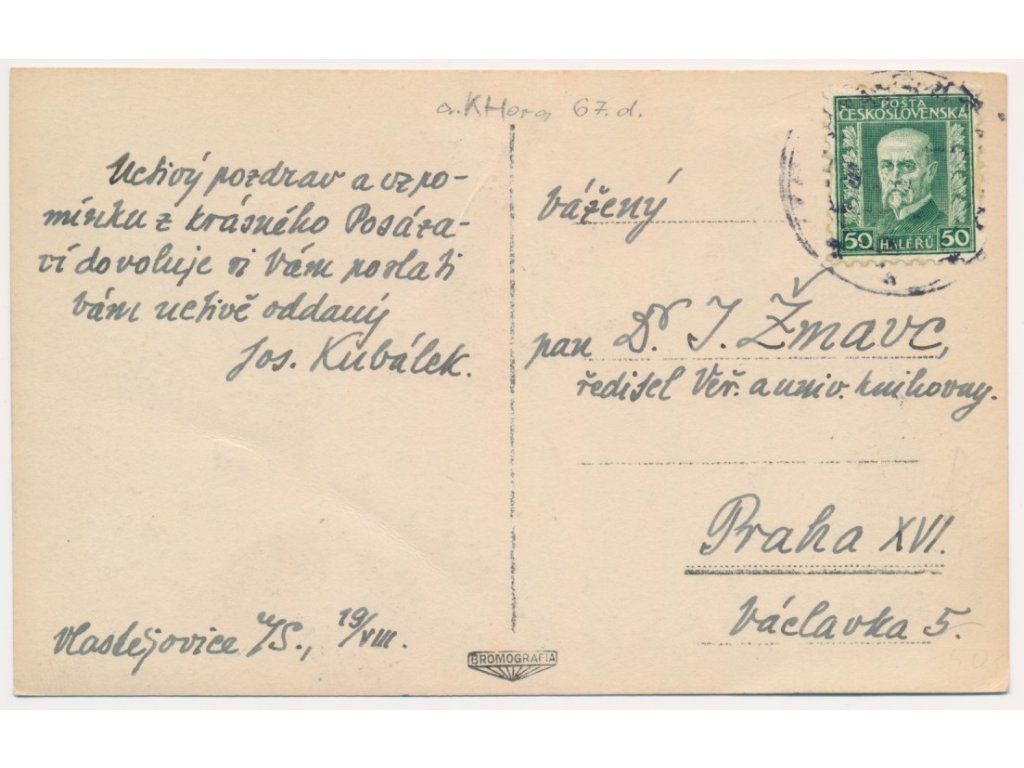 a. KHora 67. d.
Uctivý pozdrav a vzpo-
mínku z krásného Posáza-
ví dovoluje si Vám poslati
Vám uctivě oddaný
Jos. Kubálek.
Vlastějovice n/S., 19/VIII.
BROMOGRAFIA
POŠTA
ČESKOSLOVENSKÁ
50 HALÉŘŮ 50
Vážený
pan Dr. J. Žmavc,
ředitel Veř. a univ. knihovny.
Praha XVI.
Václavka 5.